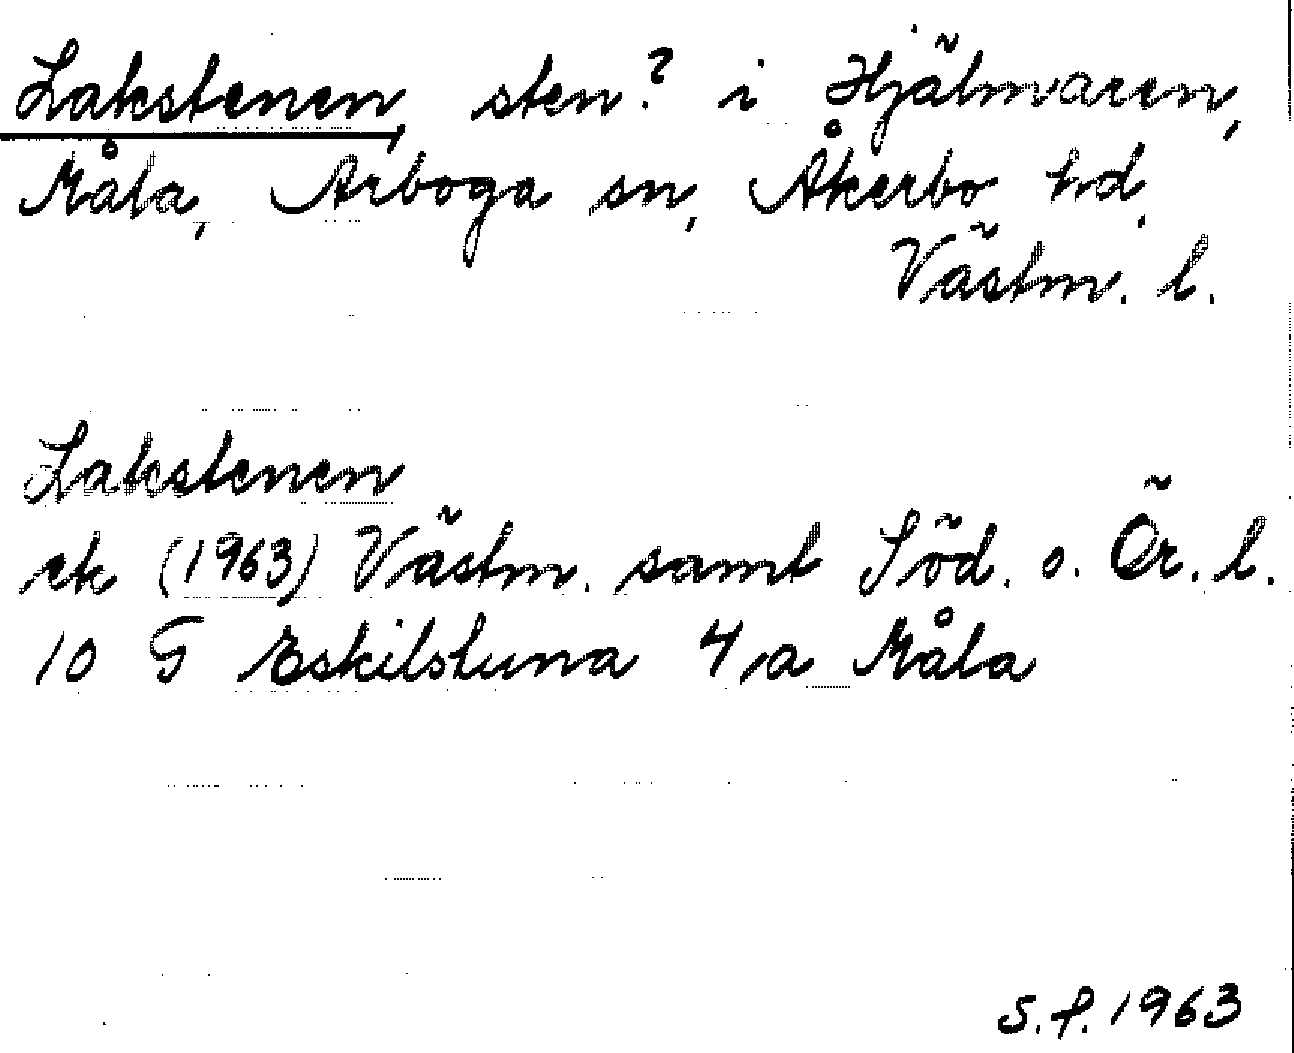 Lakstenen, sten? i Hjälmaren,
Måla, Arboga sn, Åkerbo hd,
Västm. l.
Lakstenen
ek (1963) Västm. samt Söd. o. Ör. l.
10 G Eskilstuna 4,a Måla
S.f. 1963